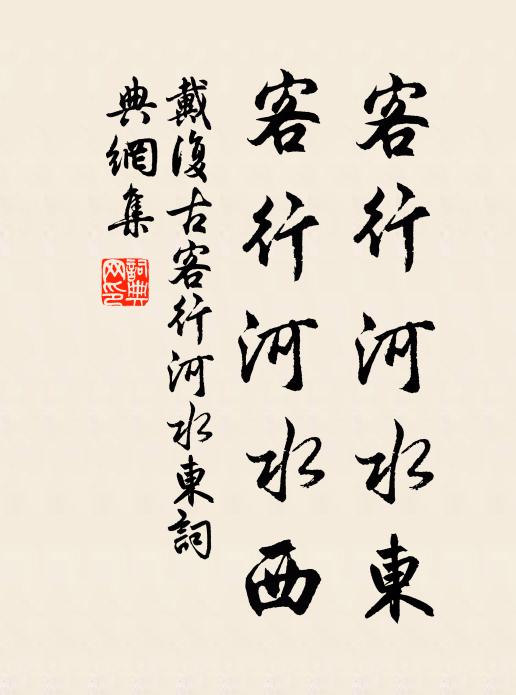 客行河水東
客行河水西
戴復古客行河水東詞
典網集
詞典
网印